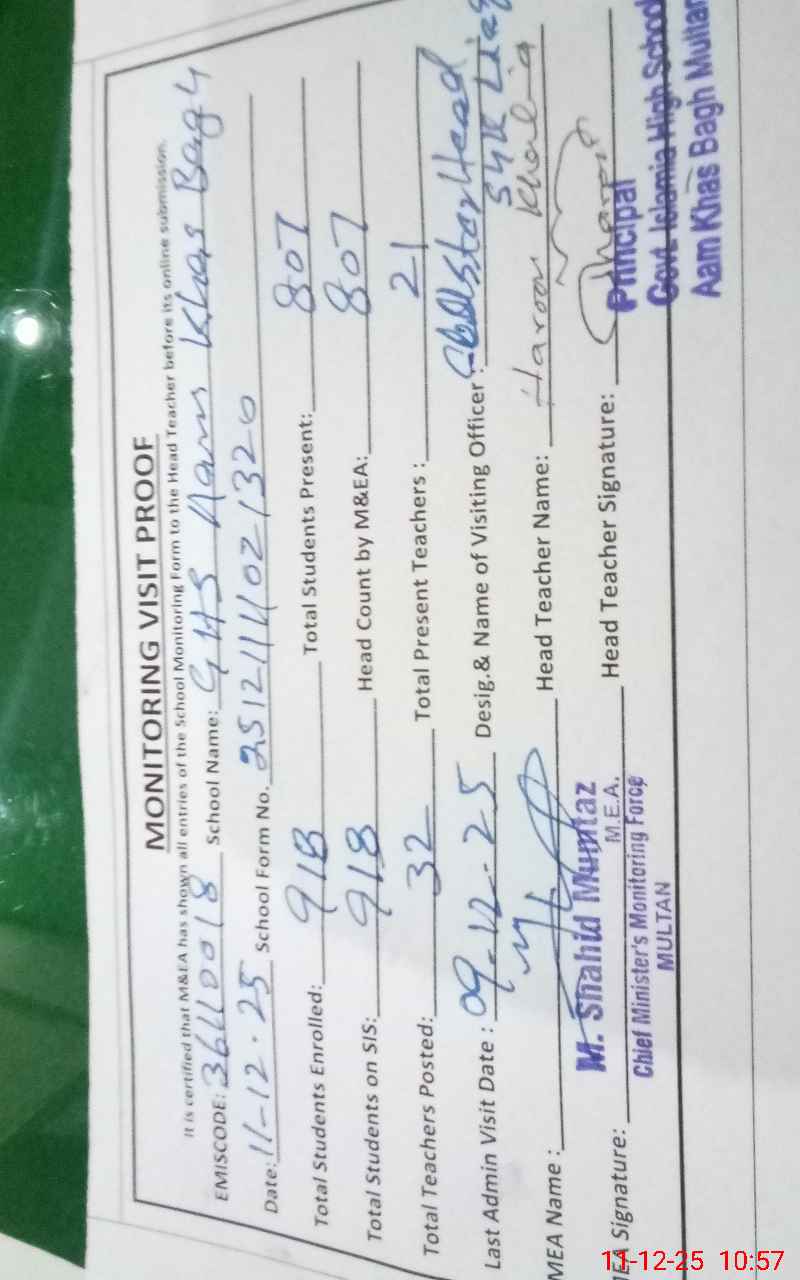 MONITORING VISIT PROOF
It is certified that M&EA has shown all entries of the School Monitoring Form to the Head Teacher before its online submission.
EMISCODE: 36110018 School Name: GHS Aam Khas Bagh
Date: 11-12-25 School Form No. 251211140021320
Total Students Enrolled: 918 Total Students Present: 807
Total Students on SIS: 918 Head Count by M&EA: 807
Total Teachers Posted: 32 Total Present Teachers : 21
Last Admin Visit Date : 09-12-25 Desig.& Name of Visiting Officer :
MEA Name : Head Teacher Name: Haroon
M. Shahid Mumtaz
M.E.A.
Chief Minister's Monitoring Force
MULTAN
EA Signature: Head Teacher Signature:
Principal
Govt. Islamia High School
Aam Khas Bagh Multan
11-12-25 10:57